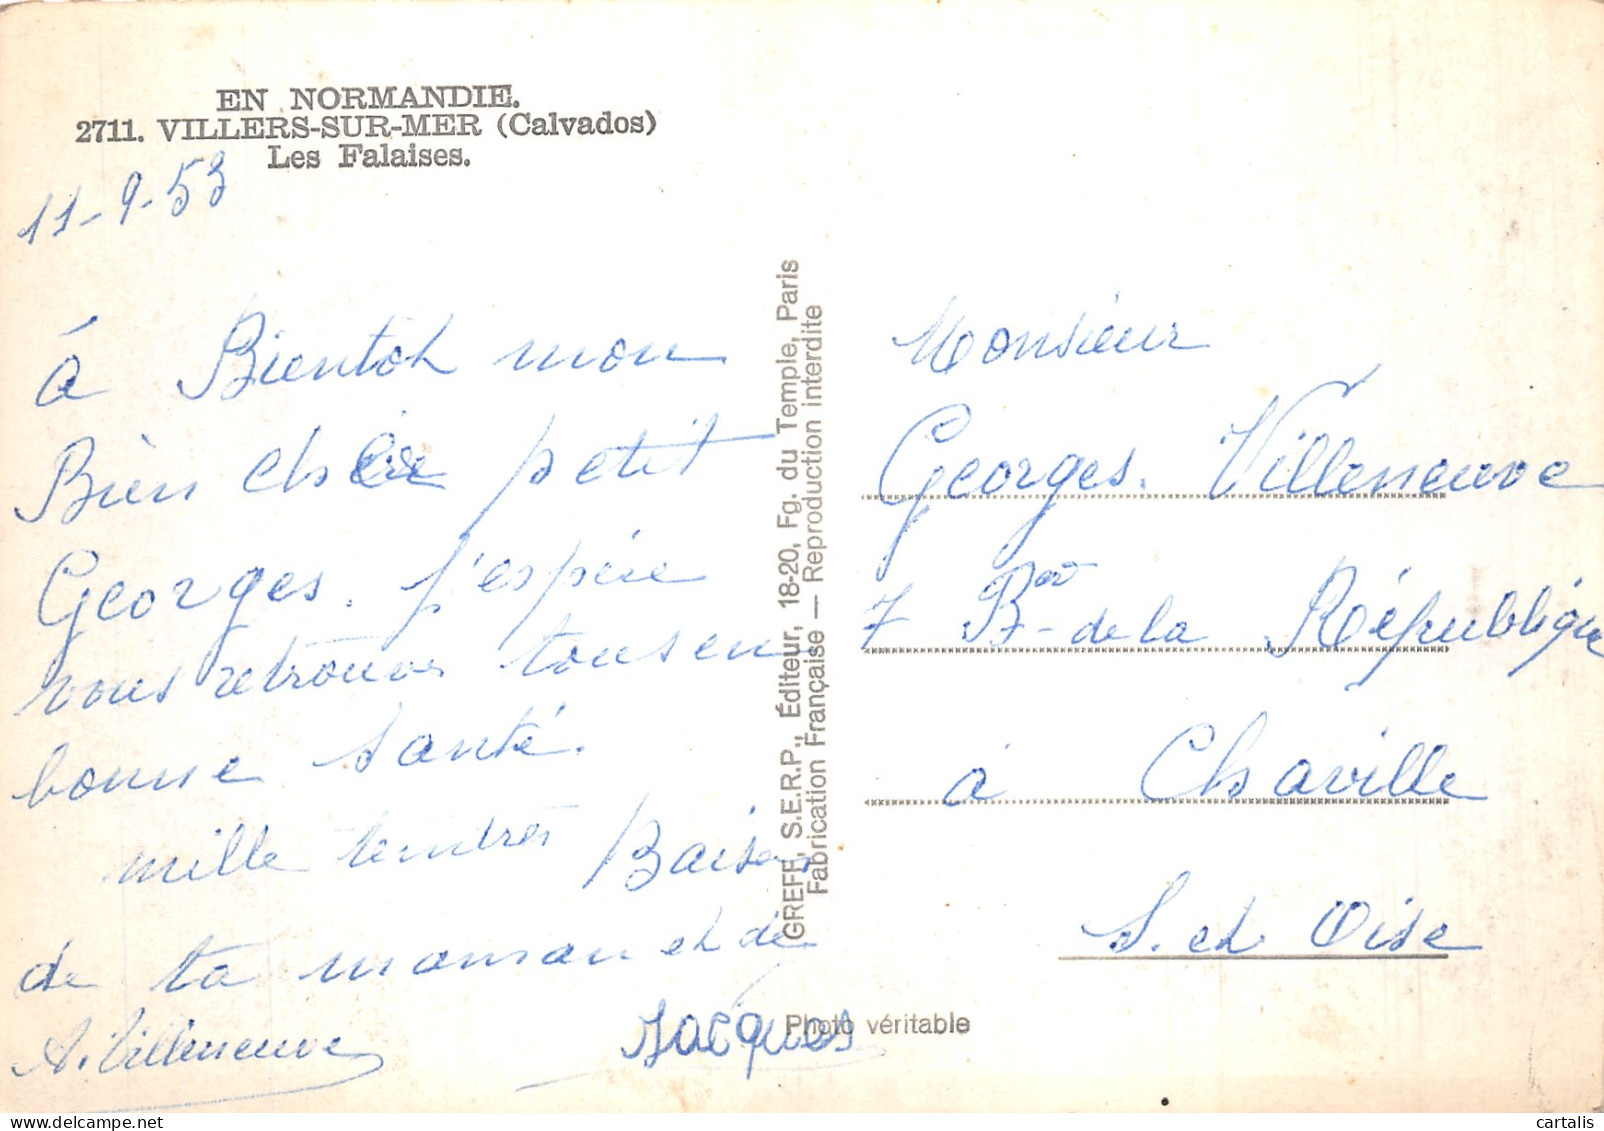 EN NORMANDIE.
2711. VILLERS-SUR-MER (Calvados)
Les Falaises.
11-9-53
à Bientot mon
Bien cher petit
Georges. j'espère
vous retrouver tous en
bonne santé.
mille tendres Baisers
de ta maman et de
Jacques
A. Villeneuve
GREFF, S.E.R.P., Éditeur, 18-20, Fg. du Temple, Paris
Fabrication Française — Reproduction interdite
Photo véritable
Monsieur
Georges. Villeneuve
7 Bd de la République
à Chaville
S. et Oise
cartalis
www.delcampe.net